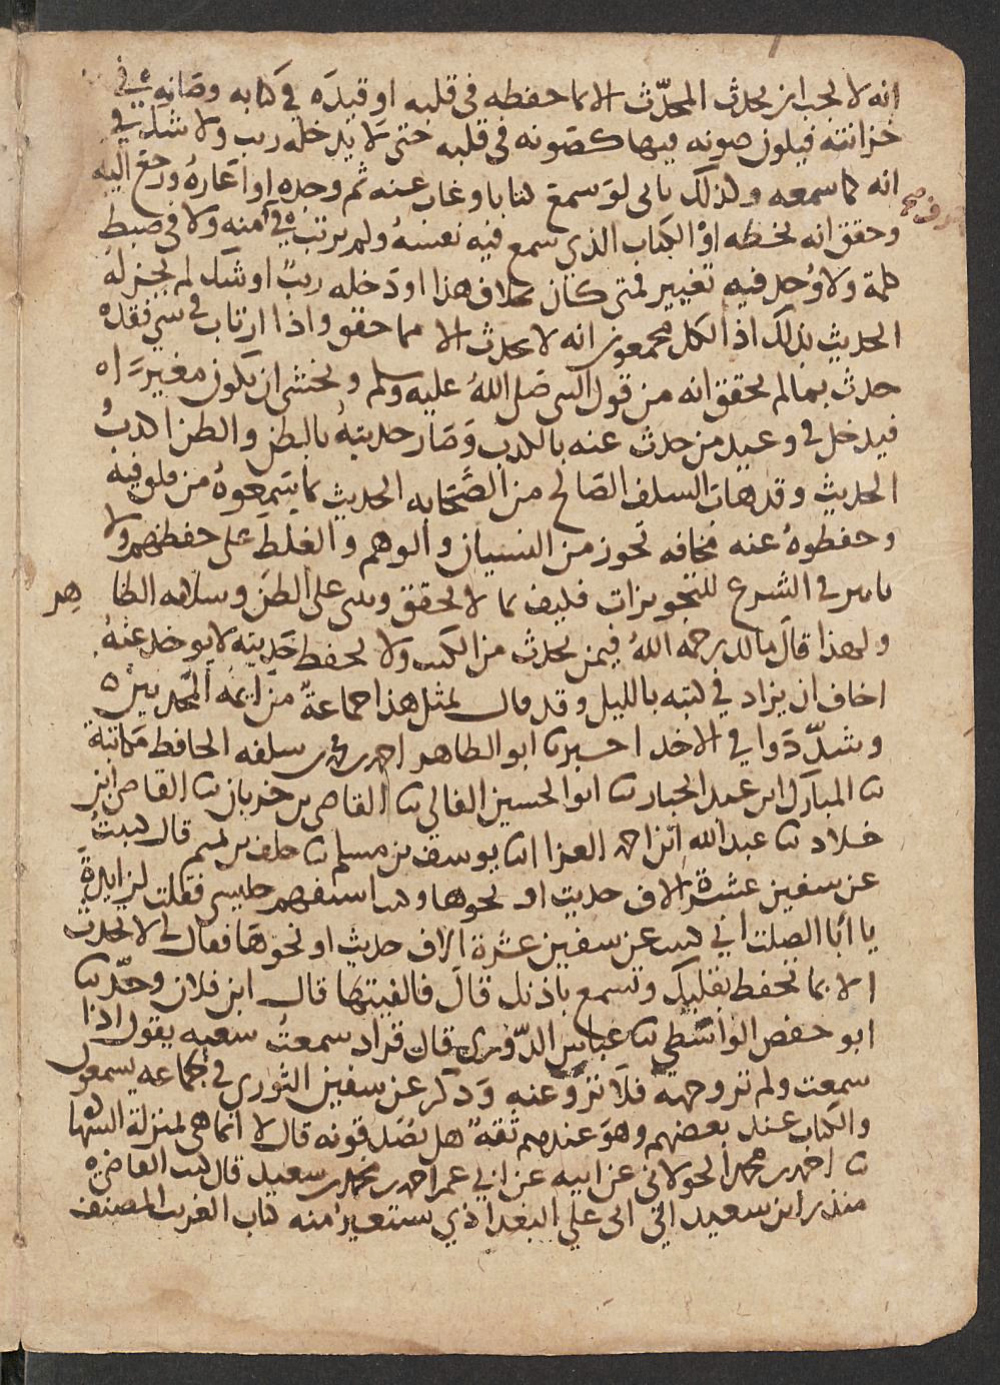 انه لا يجب ان يحدث المحدّث الا بما حفظه في قلبه او قيده في كتابه وصانه في
خزانته فيكون صونه فيها كصونه في قلبه حتى لا يدخله ريب ولا شك في
انه كما سمعه وكذلك ياتي لو سمع كتابا وغاب عنه ثم وجده او اعاره ورجع اليه
وحقق انه بخطه او الكتاب الذي سمع فيه نفسهُ ولم يرتب في منه ولا في ضبط
كلمة ولا وُجد فيه تغيير فمتى كان بخلاف هذا او دخله ريبٌ او شك لم يجز له
الحديث بذلك اذ الكل مجمعون انه لا يحدث الا بما حقق واذا ارتاب في شي فقد
حدث بما لم يحقق انه من قول النبي صلى اللهُ عليه وسلم ويخشى ان يكون مغيرًا
فيدخل في وعيد من حدث عنه بالكذب وصار حديثهُ بالظن والظن اكذبُ
الحديث وقد هاب السلف الصالح من الصحابه الحديث بما سمعوهُ من فلق فيه
وحفظوهُ عنه مخافه تجوز من النسيان والوهم والغلط على حفظهم ولا
تاثير في الشرع للتجويزات فكيف بما لا يحقق وبني على الظن وسلامه الظاهر
ولهذا قال مالك رحمه اللهُ فيمن يحدث من الكتب ولا يحفظ حديثه لا يوخذ عنهُ
اخاف ان يزاد في كتبه بالليل وقد قال بمثل هذا جماعةٌ من ايمه المحدثين
وشدّدوا في الاخذ اخبرنا ابو الطاهر احمد بن محمد بن سلفه الحافظ مكاتبة
نا المبارك ابن عبد الجبار نا ابو الحسين الفالي نا القاضي بن خربان نا القاضي ابن
خلاد نا عبد الله ابن احمد الغزا نا يوسف بن مسلم نا خلف بن تميم قال كتبتُ
عن سفين عشرة الاف حديث او نحوها وكنت استفهم جليسي فقلت لزايدة
يا ابا الصلت اني كتبت عن سفين عشرة الاف حديث او نحوها فقال لي لا تحدث
الا بما تحفظ بقلبك وتسمع باذنك قال فالقيتها قال ابن فلان وحدّثنا
ابو حفص الواسطي نا عباس الدّوري قال قراد سمعتُ شعبه يقول اذا
سمعت ولم تر وجهه فلا تروِ عنه وذكر عن سفين الثوري في جماعه يسمعون
والكتاب عند بعضهم وهو عندهم ثقه هل يُصَدقونه قال لا انما هي بمنزلة الشهادة
نا احمد بن محمد الخولاني عن ابيه عن ابي عمر احمد بن محمد بن سعيد قال كتب القاضي
منذر ابن سعيد الى ابي علي البغداذي يستعير منه كتاب الغريب المصنف